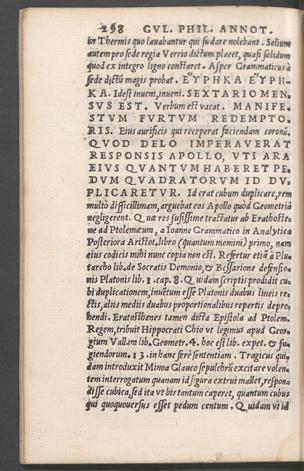 298 GVL. PHIL. ANNOT.
in Thermis quo lauabantur qui sudare nolebant. Solium
autem pro sede regia Verrio dictum placet, quasi solidum
quod ex integro ligno constaret. Asper Grammaticus à
sede dictũ magis probat. ΕΥΡΗΚΑ ΕΥΡΗ-
ΚΑ. Idest inueni, inueni. SEXTARIO MEN
SVS EST. Verbum est vacat. MANIFE
STVM FVRTVM REDEMPTO
RIS. Eius aurificis qui receperat faciendam coronã.
QVOD DELO IMPERAVERAT
RESPONSIS APOLLO, VTI ARA
EIVS QVANTVM HABERET PE
DVM QVADRATORVM ID DV
PLICARETVR. Id erat cubum duplicare, rem
multò difficillimam, arguebat eos Apollo quòd Geometriã
negligerent. Quæ res fusissime tractatur ab Eratoste
ne ad Ptolemæum, a Ioanne Grammatico in Analytica
Posteriora Aristot. libro (quantum memini) primo, nam
eius codicis mihi nunc copia non est. Refertur etiã à Plu
tarcho lib. de Socratis Demonio, & Bessarione defensio
nis Platonis lib. 1. cap. 8. Quidam scriptis prodidit cu
bi duplicationem, inuentum esse Platonis duabus lineis re
ctis, aliis mediis duabus proportionalibus repertis depre
hendi. Eratosthenes tamen dicta Epistola ad Ptolem.
Regem, tribuit Hippocrati Chio vt legimus apud Geor
gium Vallam lib. Geometr. 4. hoc est lib. expet. & fu
giendorum. 13. in hanc ferè sententiam. Tragicus qui
dam introduxit Minoa Glauco sepulchrũ excitare volen
tem interrogatum quanam id figura extrui mallet, respon
disse cubica, sed ita vt bis tantum caperet, quantum cubus
qui quoquouersus esset pedum centum. Quidam vt id